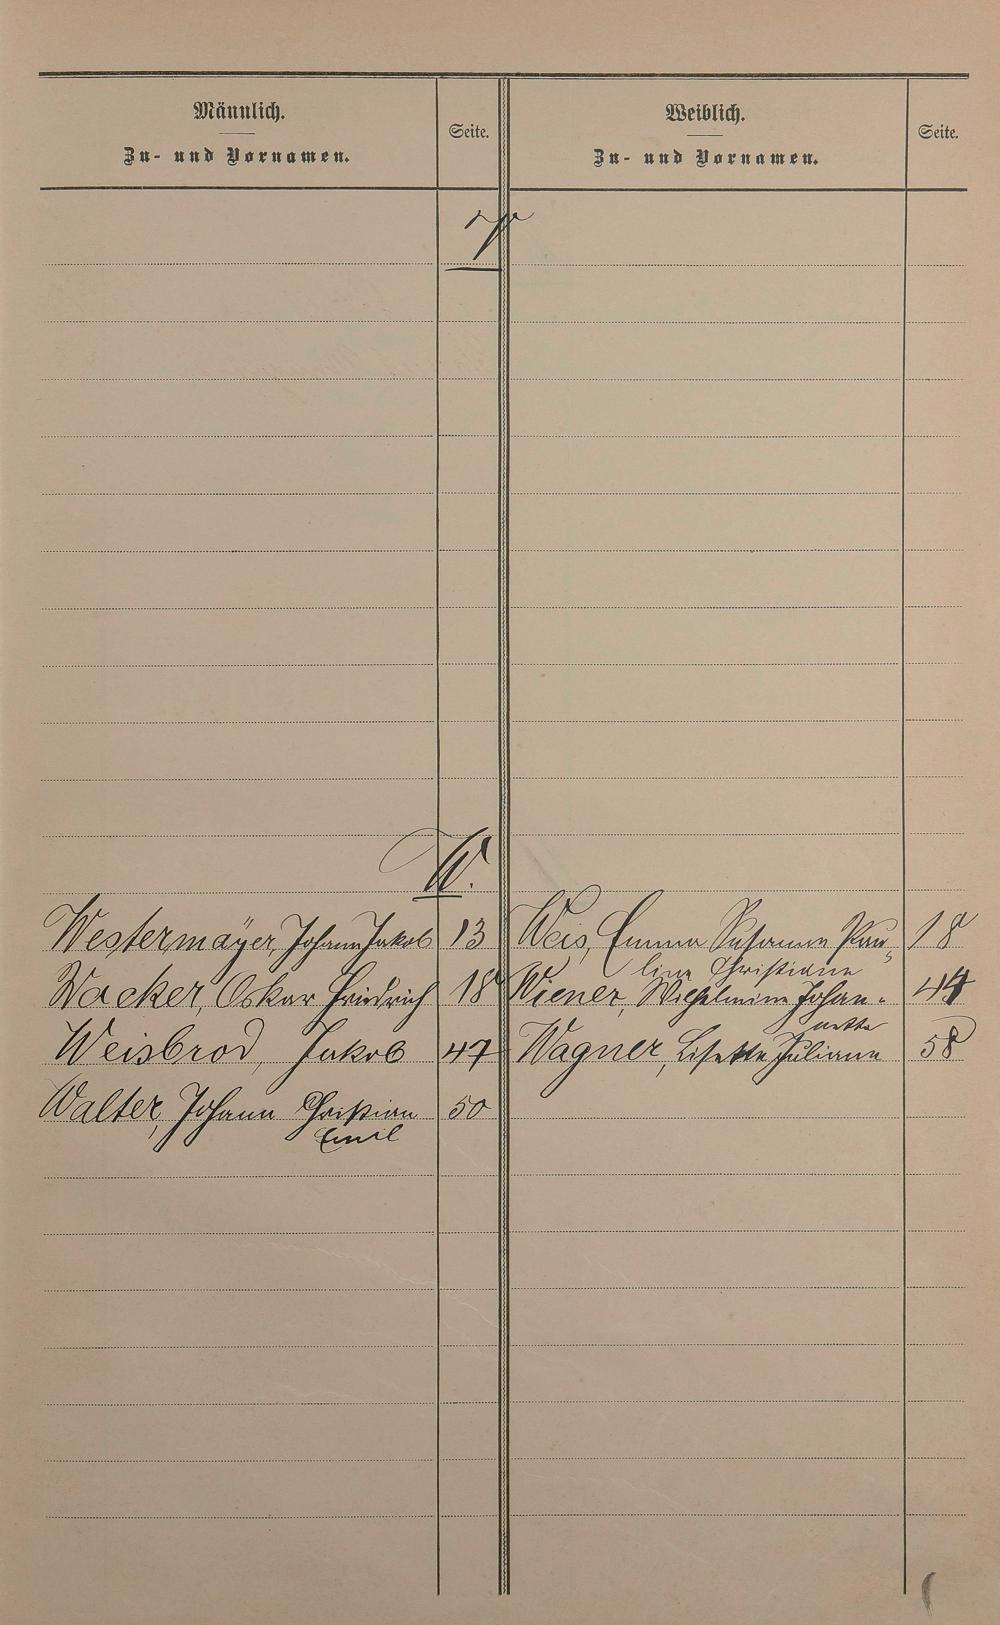 Männlich.
Zu- und Vornamen.
Seite.
Weiblich.
Zu- und Vornamen.
Seite.
V
W.
Westermäyer, Johann Jakob 13
Wacker, Oskar Friedrich 18
Weisbrod, Jakob 47
Walter, Johann Christian 50
Emil
Weis, Emma Susanna Pau- 18
lina Christiana
Wiener, Wilhelmine Johan- 44
nette
Wagner, Lisette Juliana 58